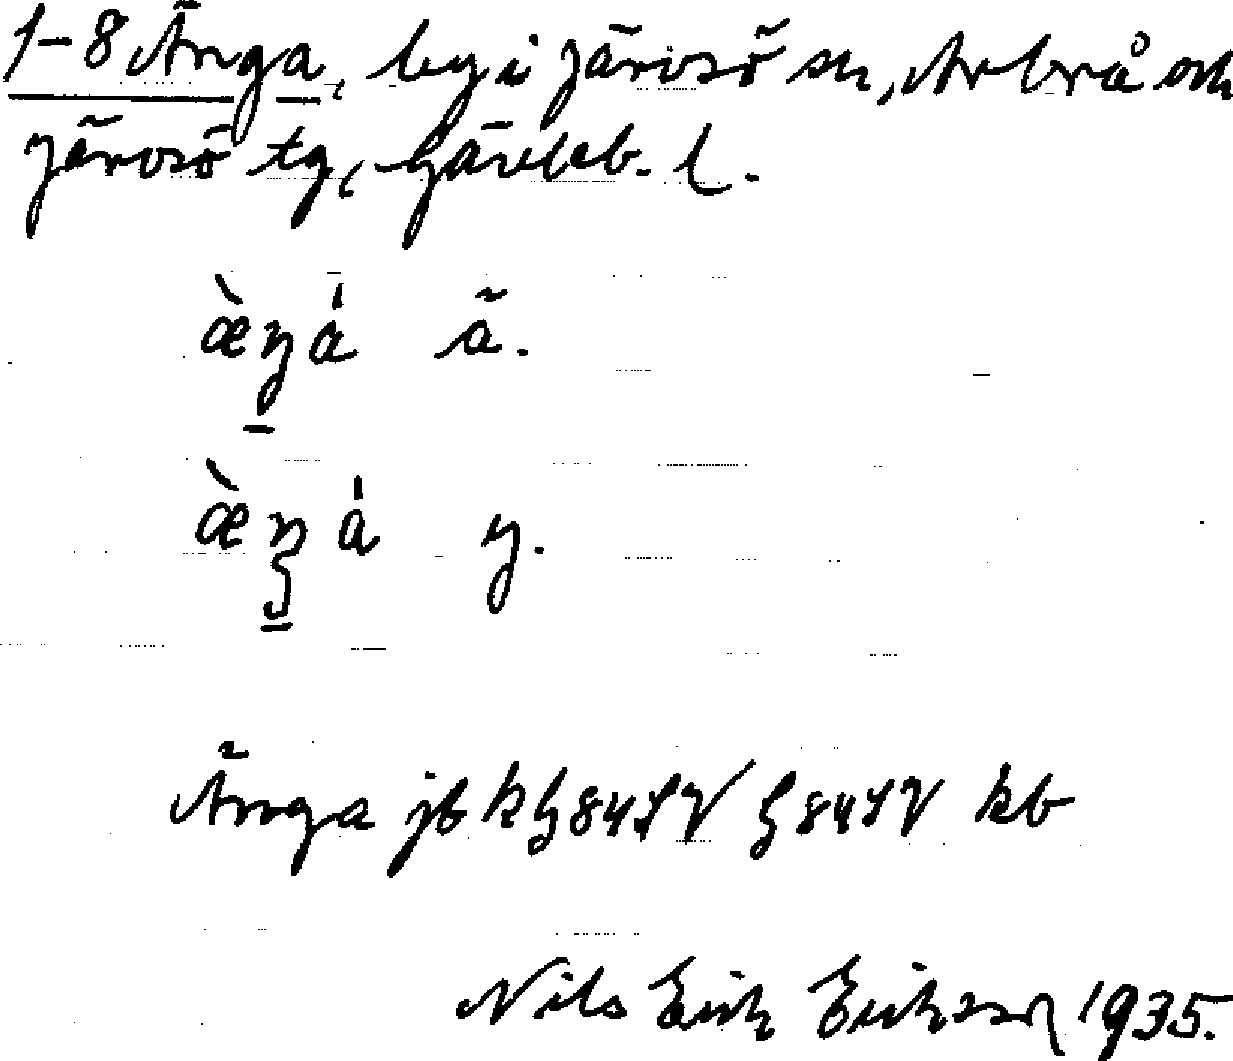 1-8 Änga, by i Järvsö sn, Arbrå och
Järvsö tg, Gävleb. l.
æ̀ŋá ä.
æ̀ŋá y.
Änga jb kh 84 1 V 84 1 V kb
Nils Erik Eriksson 1935.